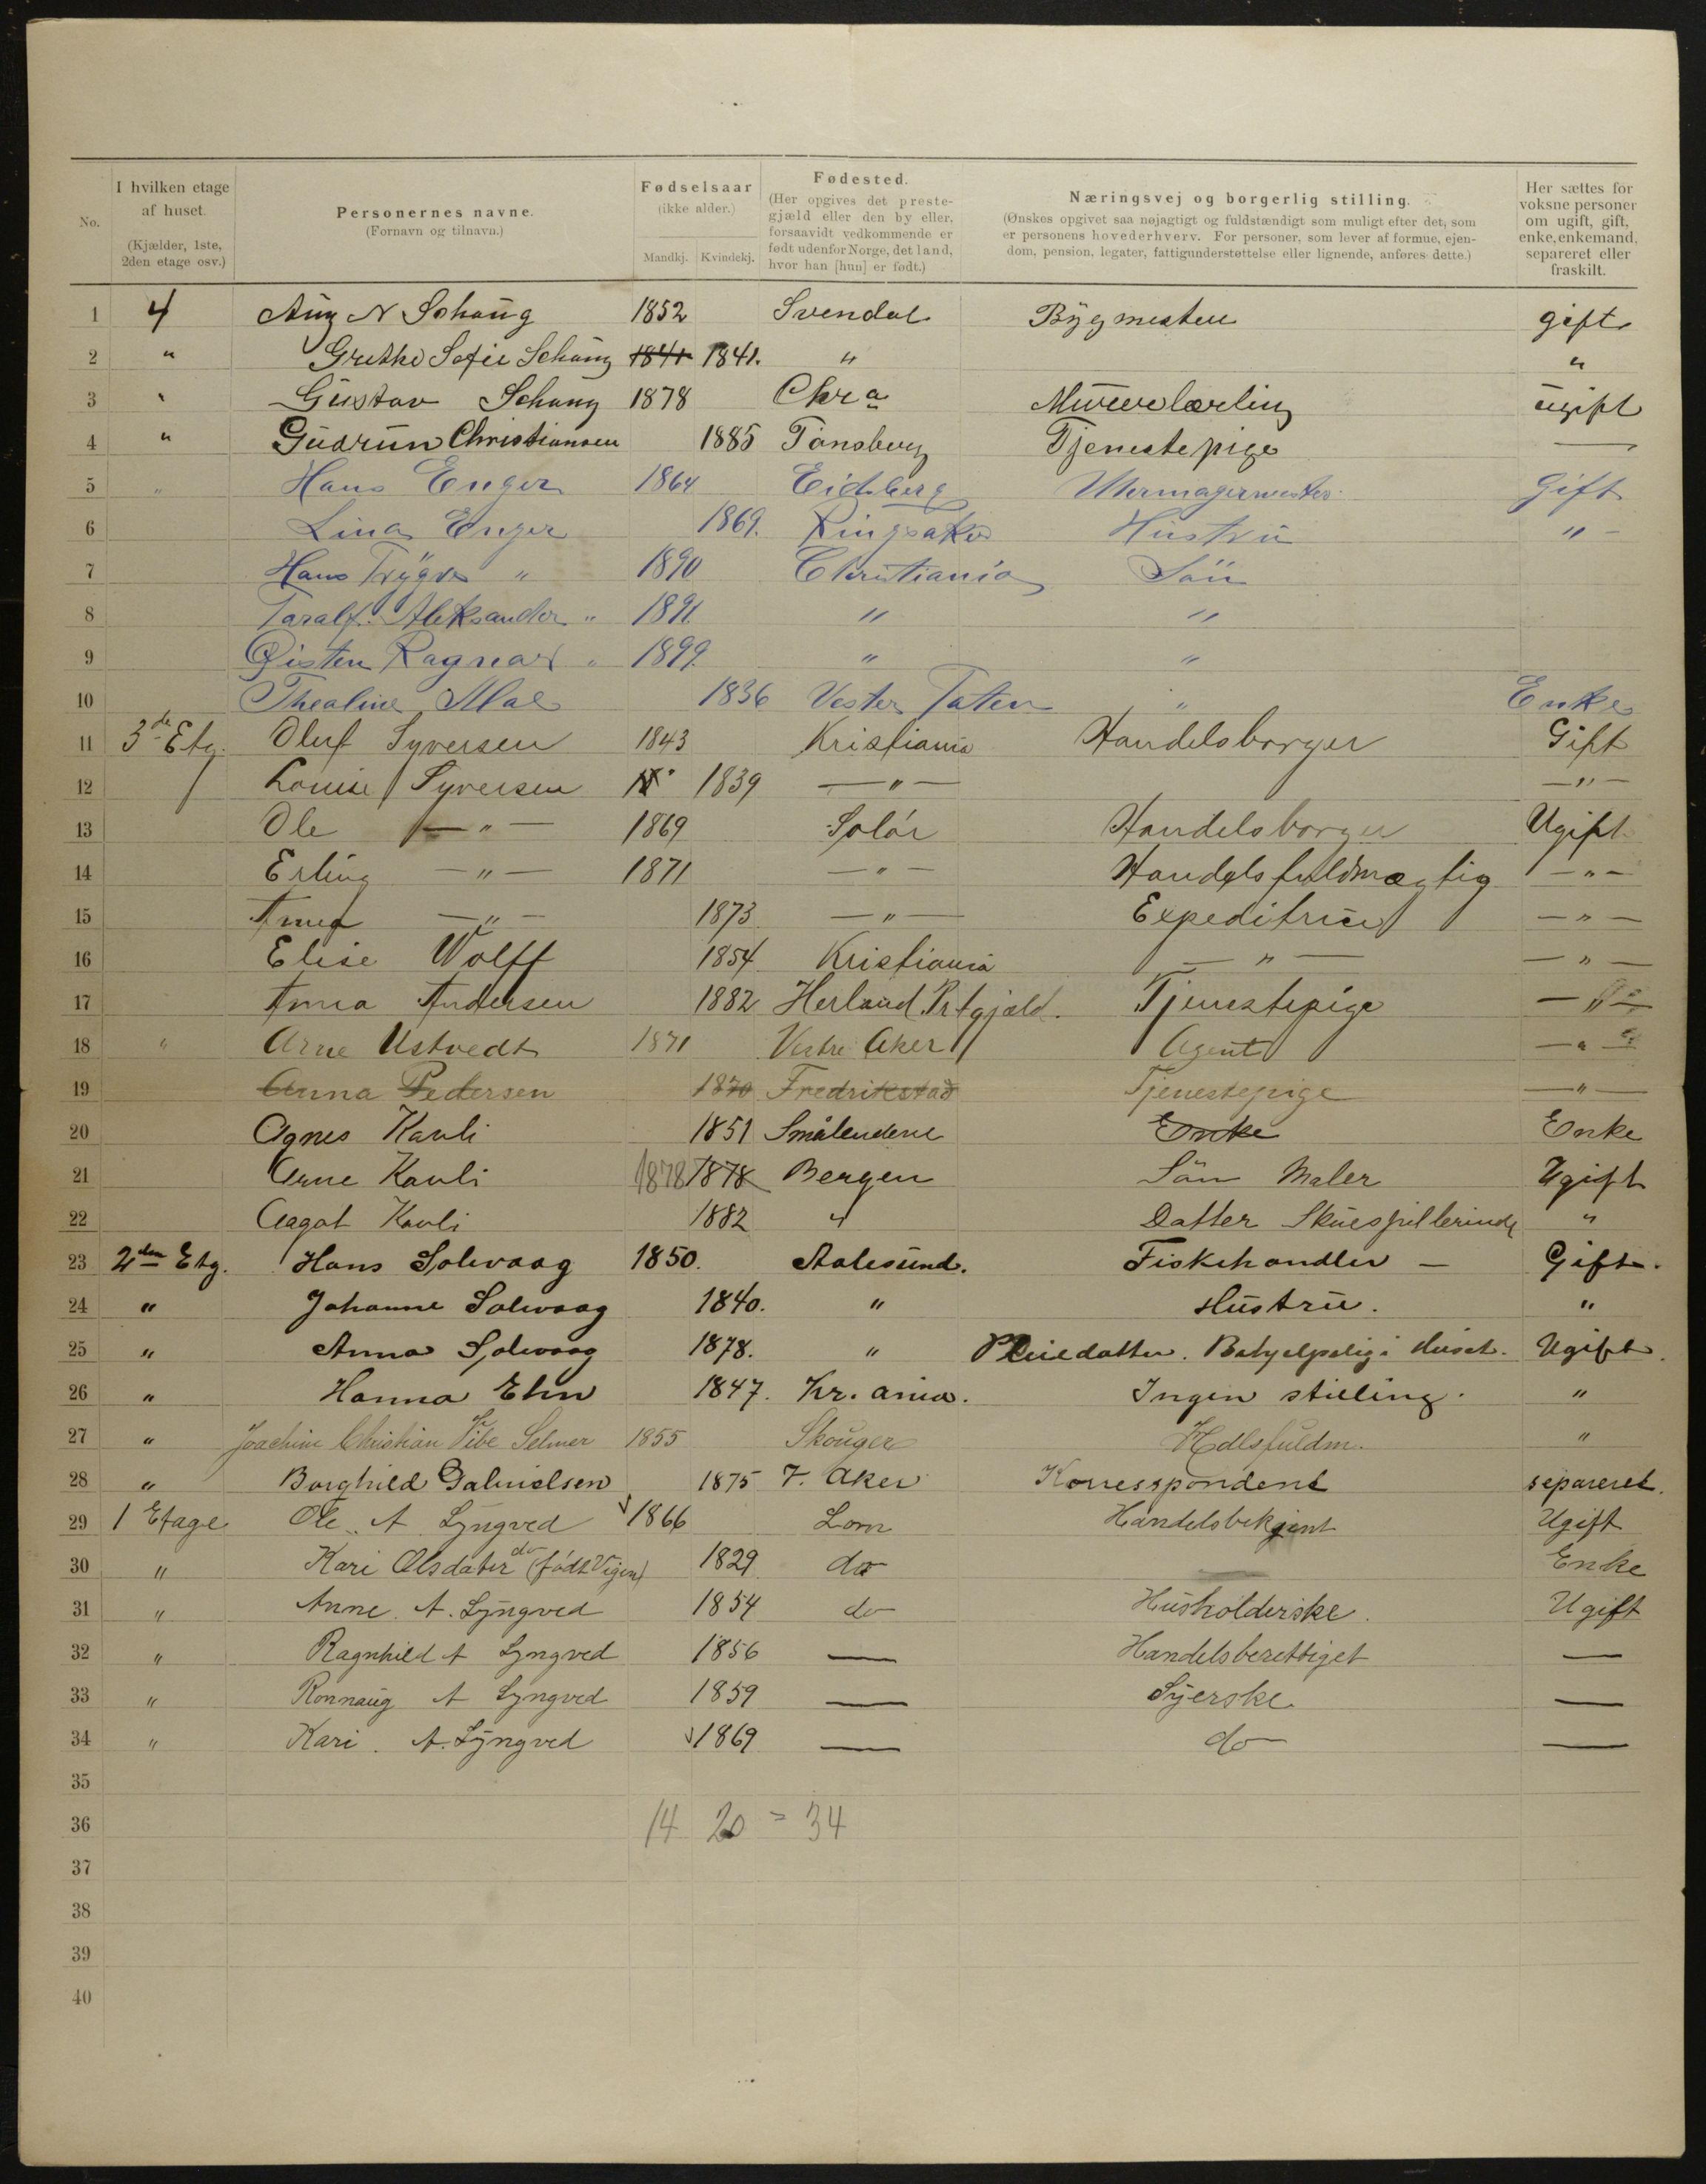 No. | I hvilken etage af huset. (Kjælder, 1ste, 2den etage osv.) | Personernes navne. (Fornavn og tilnavn.) | Fødselsaar (ikke alder.) Mandkj. Kvindekj. | Fødested. (Her opgives det prestegjæld eller den by eller, forsaavidt vedkommende er født udenfor Norge, det land, hvor han [hun] er født.) | Næringsvej og borgerlig stilling. (Ønskes opgivet saa nøjagtigt og fuldstændigt som muligt efter det, som er personens hovederhverv. For personer, som lever af formue, ejendom, pension, legater, fattigunderstøttelse eller lignende, anføres dette.) | Her sættes for voksne personer om ugift, gift, enke, enkemand, separeret eller fraskilt.
1 4 Aug N Schaug 1852 Svendal Bygmester gift
2 " Grethe Sofie Schaug 1841 1841. " "
3 " Gustav Schaug 1878 Chra Murerlærling ugift
4 " Gudrun Christiansen 1885 Tønsberg Tjenestepige —
5 " Hans Enger 1864 Eidsberg Uhrmagermester Gift
6 Lina Enger 1869. Ringsaker Hustru " -
7 Hans Trygve " 1890 Christiania Sön
8 Taralf Aleksander " 1891 " "
9 Øisten Ragnar " 1899 " "
10 Thealine 1836 Vester Toten " Enke
11 3de Etg. Oluf Syversen 1843 Kristiania Handelsborger Gift
12 Louise Syversen 1839 — " — — " —
13 Ole — " — 1869 Solör Handelsborger Ugift
14 Erling — " — 1871 — " — Handelsfuldmægtig — " —
15 — " — 1873 — " — Expeditrice — " —
16 Elise Wolff 1854 Kristiania — " — — " —
17 Anna Andersen 1882 Herland Prtgjæld. Tjenestepige — " —
18 " Arne Ustvedt 1871 Vestre Aker Agent — " —
19 Anna Pedersen 1870 Fredrikstad Tjenestepige — " —
20 Agnes Kavli 1851 Smålendene Enke Enke
21 Arne Kavli 1878 1878 Bergen Sön Maler Ugift
22 Aagot Kavli 1882 " Datter Skuespillerinde "
23 2den Etg. Hans Solevaag 1850. Aalesund. Fiskehandler — Gift.
24 " Johanne Solevaag 1840. " Hustru. "
25 " Anna Solevaag 1878. " Pleiedatter. Behjelpelig i Huset. Ugift.
26 " Hanna Ehn 1847. Kr.ania. Ingen stilling. "
27 " Joachim Christian Vibe Selmer 1855 Skouger Hdlsfuldm. "
28 " Borghild Gabrielsen 1875 V. Aker Korrespondent separeret.
29 1 Etage Ole A Lyngved 1866 Lom Handelsbetjent Ugift
30 " Kari Olsdater do (födt Vigen) 1829 do Enke
31 " Anne A. Lyngved 1854 do Husholderske. Ugift
32 " Ragnhild A Lyngved 1856 — Handelsberettiget —
33 " Ronnaug A Lyngved 1859 — Syerske —
34 " Kari. A. Lyngved 1869 — do —
35
36 14 20 = 34
37
38
39
40